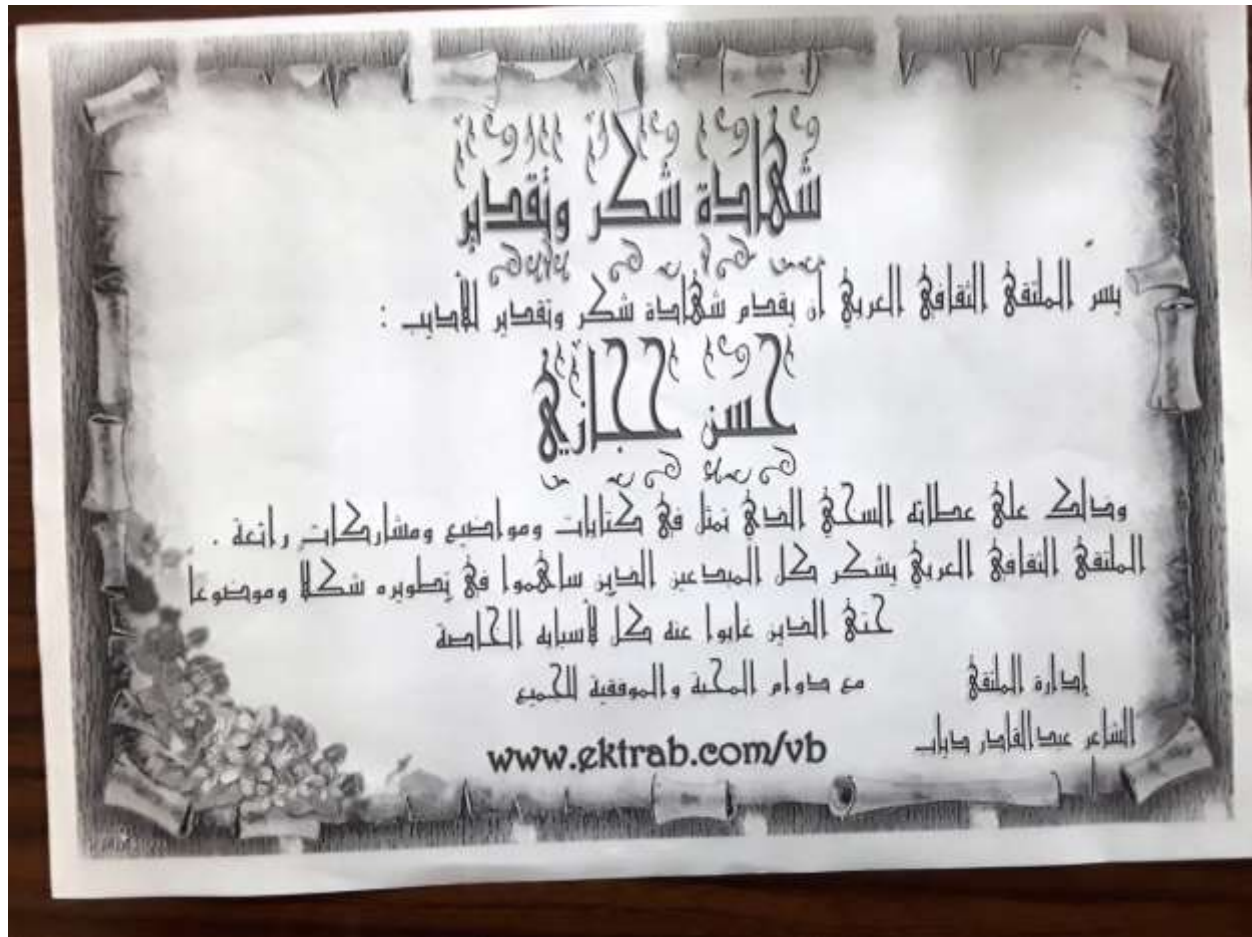 شهادة شكر وتقدير
يسر الملتقى الثقافي العربي أن يقدم شهادة شكر وتقدير للأديب :
حسن حجازي
وذلك على عطائه السخي الذي تمثل في كتابات ومواضيع ومشاركات رائعة .
الملتقى الثقافي العربي يشكر كل المبدعين الذين ساهموا في تطويره شكلا وموضوعا
حتى الذين غابوا عنه كل لأسبابه الخاصة
مع دوام المحبة والموفقية للجميع
إدارة الملتقى
الشاعر عبدالقادر دياب
www.ektrab.com/vb